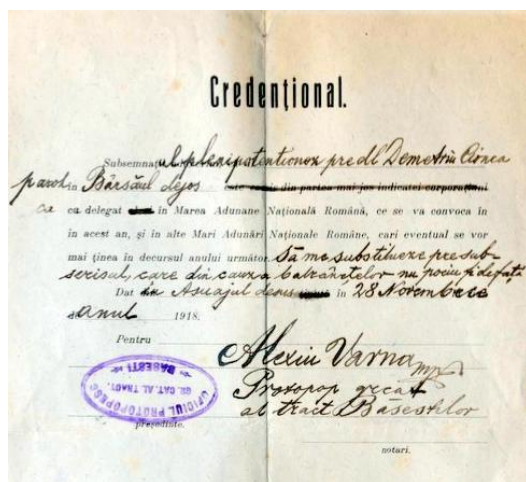 Credențional.
Subsemnatul plenipotentionez pre dl Demetriu Cionca
paroh în Bârsăul dejos este din partea mai jos indicatei corporațiuni
ca delegat în Marea Adunare Națională Română, ce se va convoca în
în acest an, și în alte Mari Adunări Naționale Române, cari eventual se vor
mai ținea în decursul anului următor. Să mă substitueze pre sub-
scrisul, care din cauza betrânețelor nu pociu fi de față,
Dat Asuajul desus în 28 Novembrie
anul 1918.
Pentru
Alexiu Varna mp
Protopop grcat
al tract Basestilor
OFICIUL PROTOPOPESC
GR. CAT. AL TRACT.
BASESTI
președinte.
notari.